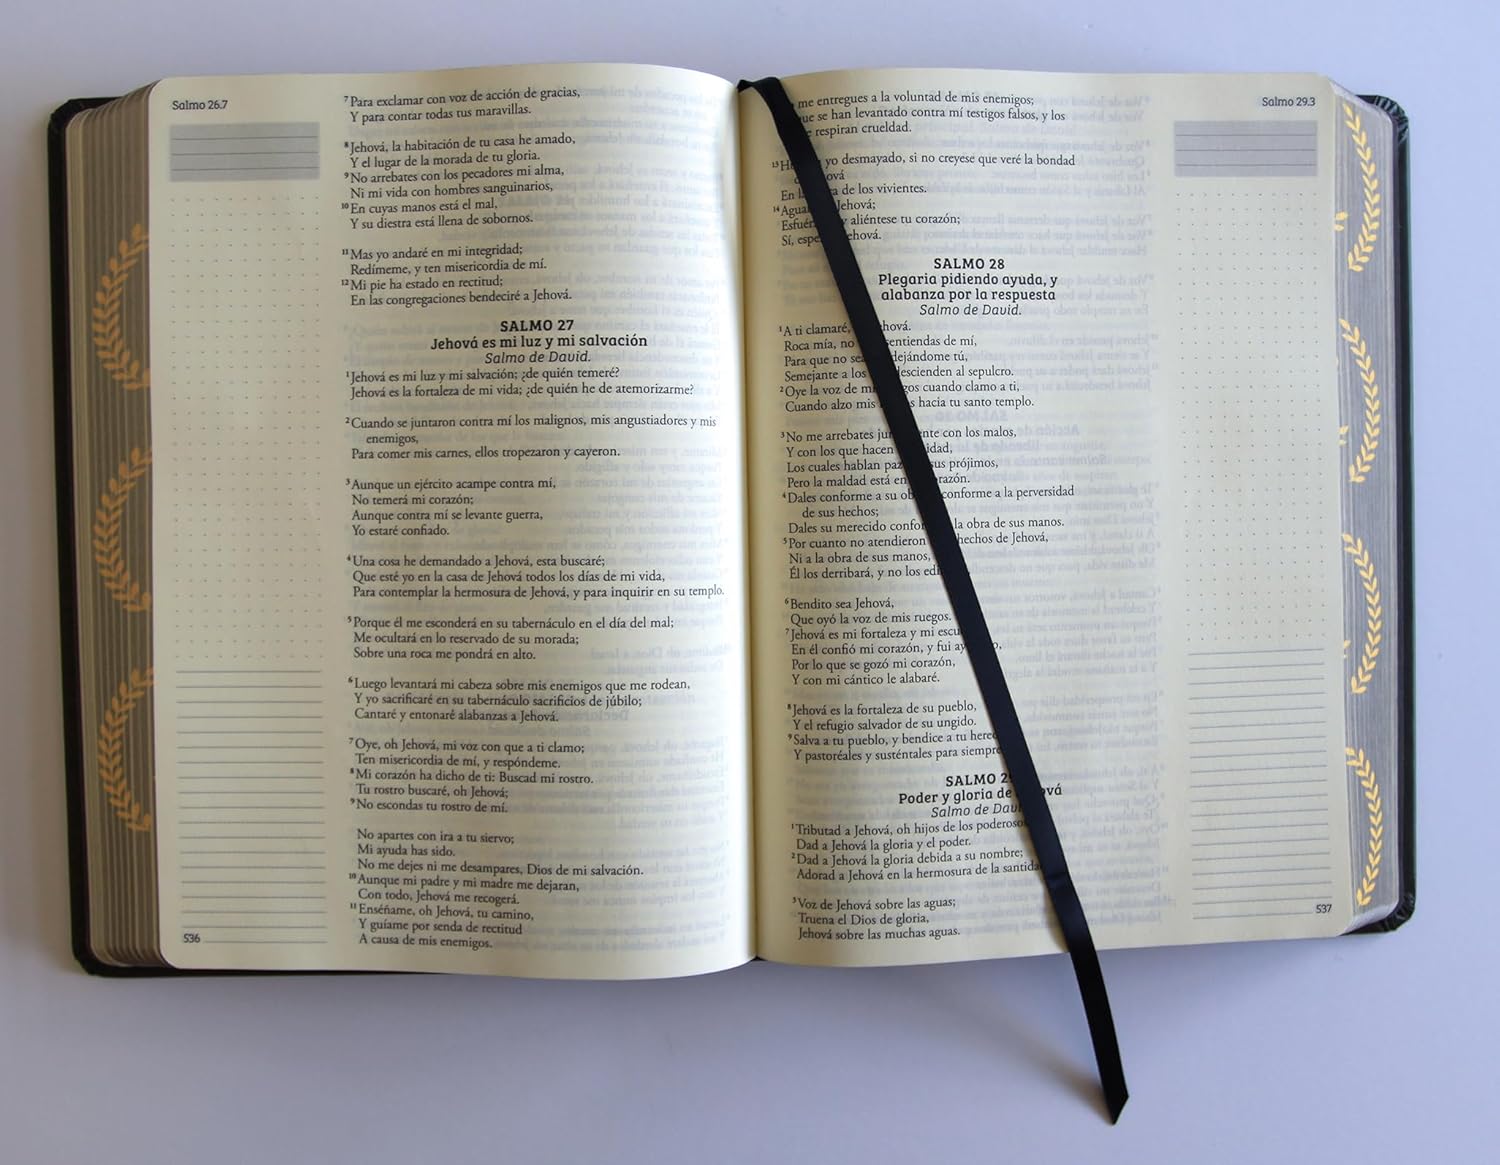 Salmo 26.7
7 Para exclamar con voz de acción de gracias,
Y para contar todas tus maravillas.
8 Jehová, la habitación de tu casa he amado,
Y el lugar de la morada de tu gloria.
9 No arrebates con los pecadores mi alma,
Ni mi vida con hombres sanguinarios,
10 En cuyas manos está el mal,
Y su diestra está llena de sobornos.
11 Mas yo andaré en mi integridad;
Redímeme, y ten misericordia de mí.
12 Mi pie ha estado en rectitud;
En las congregaciones bendeciré a Jehová.
SALMO 27
Jehová es mi luz y mi salvación
Salmo de David.
1 Jehová es mi luz y mi salvación; ¿de quién temeré?
Jehová es la fortaleza de mi vida; ¿de quién he de atemorizarme?
2 Cuando se juntaron contra mí los malignos, mis angustiadores y mis
enemigos,
Para comer mis carnes, ellos tropezaron y cayeron.
3 Aunque un ejército acampe contra mí,
No temerá mi corazón;
Aunque contra mí se levante guerra,
Yo estaré confiado.
4 Una cosa he demandado a Jehová, esta buscaré;
Que esté yo en la casa de Jehová todos los días de mi vida,
Para contemplar la hermosura de Jehová, y para inquirir en su templo.
5 Porque él me esconderá en su tabernáculo en el día del mal;
Me ocultará en lo reservado de su morada;
Sobre una roca me pondrá en alto.
6 Luego levantará mi cabeza sobre mis enemigos que me rodean,
Y yo sacrificaré en su tabernáculo sacrificios de júbilo;
Cantaré y entonaré alabanzas a Jehová.
7 Oye, oh Jehová, mi voz con que a ti clamo;
Ten misericordia de mí, y respóndeme.
8 Mi corazón ha dicho de ti: Buscad mi rostro.
Tu rostro buscaré, oh Jehová;
9 No escondas tu rostro de mí.
No apartes con ira a tu siervo;
Mi ayuda has sido.
No me dejes ni me desampares, Dios de mi salvación.
10 Aunque mi padre y mi madre me dejaran,
Con todo, Jehová me recogerá.
11 Enséñame, oh Jehová, tu camino,
Y guíame por senda de rectitud
A causa de mis enemigos.
536
Salmo 29.3
me entregues a la voluntad de mis enemigos;
se han levantado contra mí testigos falsos, y los
respiran crueldad.
13 yo desmayado, si no creyese que veré la bondad
En la de los vivientes.
14 Jehová;
y aliéntese tu corazón;
Sí,
SALMO 28
Plegaria pidiendo ayuda, y
alabanza por la respuesta
Salmo de David.
1 A ti clamaré,
Roca mía, no de mí,
Para que no dejándome tú,
Semejante a los descienden al sepulcro.
2 Oye la voz de mis cuando clamo a ti,
Cuando alzo mis hacia tu santo templo.
3 No me arrebates con los malos,
Y con los que hacen
Los cuales hablan sus prójimos,
Pero la maldad está en
4 Dales conforme a su conforme a la perversidad
de sus hechos;
Dales su merecido la obra de sus manos.
5 Por cuanto no atendieron hechos de Jehová,
Ni a la obra de sus manos,
Él los derribará, y no los
6 Bendito sea Jehová,
Que oyó la voz de mis ruegos.
7 Jehová es mi fortaleza y mi
En él confió mi corazón, y fui
Por lo que se gozó mi corazón,
Y con mi cántico le alabaré.
8 Jehová es la fortaleza de su pueblo,
Y el refugio salvador de su ungido.
9 Salva a tu pueblo, y bendice a tu
Y pastoréales y susténtales para siempre
SALMO 29
Poder y gloria de
Salmo de David
1 Tributad a Jehová, oh hijos de los poderosos
Dad a Jehová la gloria y el poder.
2 Dad a Jehová la gloria debida a su nombre;
Adorad a Jehová en la hermosura de la
3 Voz de Jehová sobre las aguas;
Truena el Dios de gloria,
Jehová sobre las muchas aguas.
537